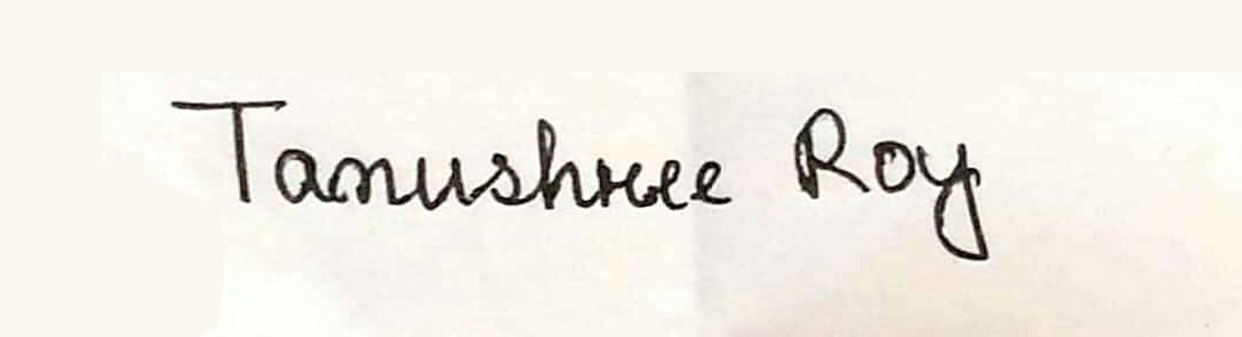 Tanushree Roy